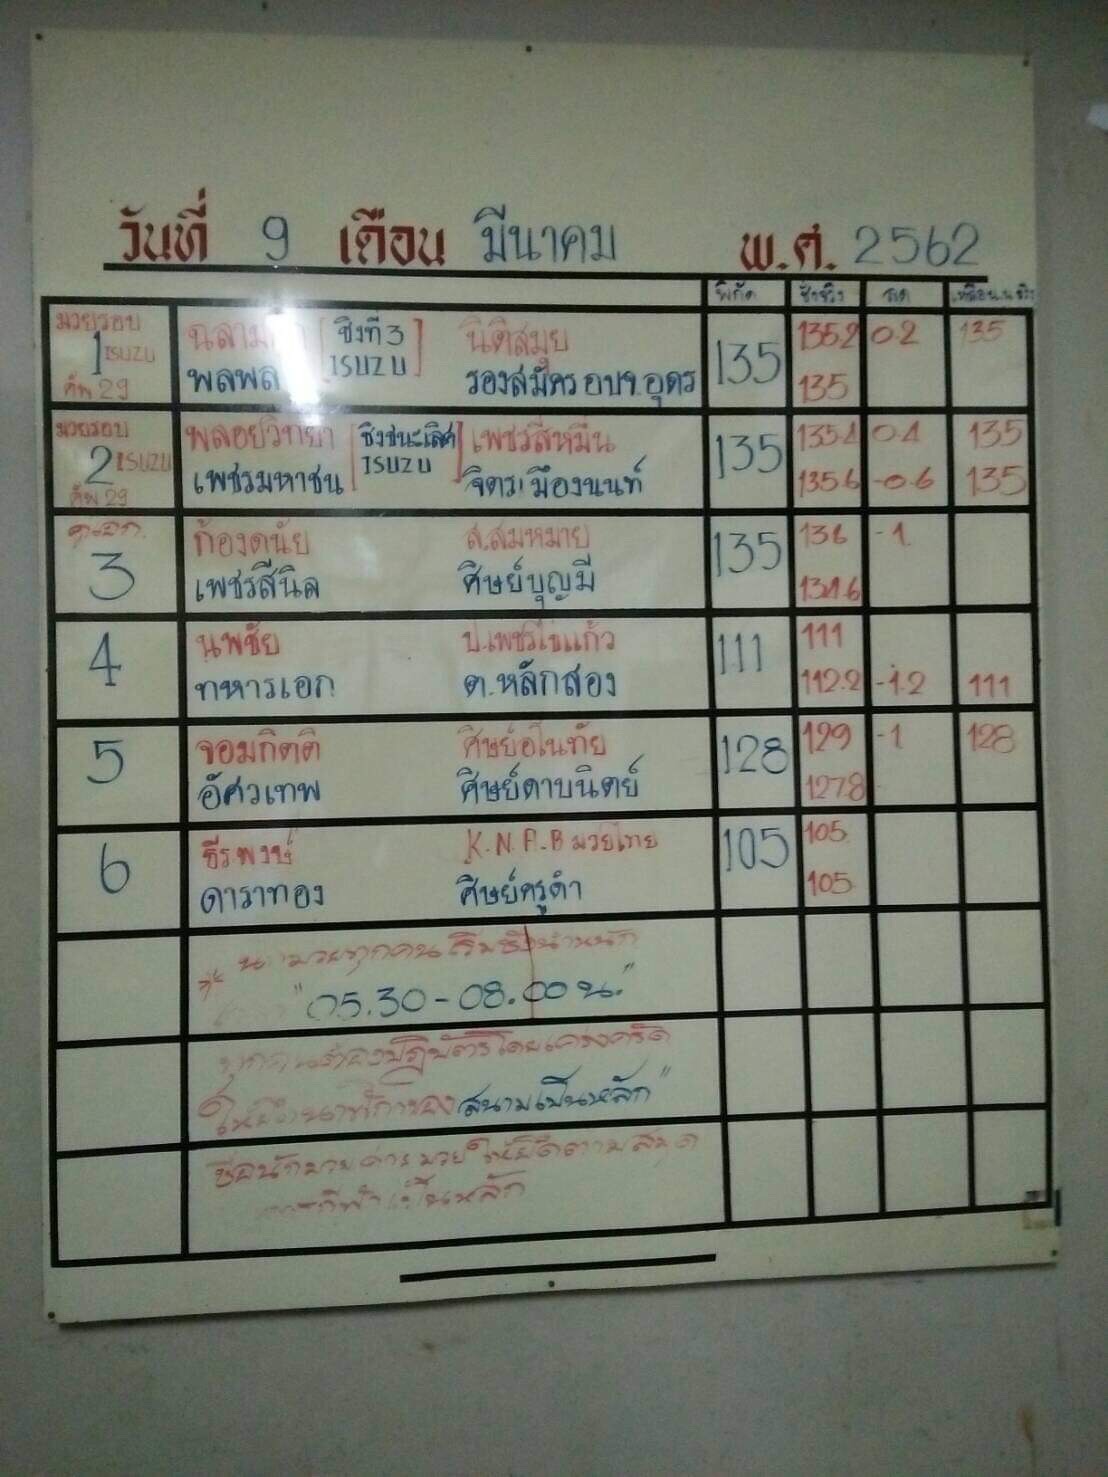 วันที่ 9 เดือน มีนาคม พ.ศ. 2562
พิกัด ชั่งจริง ลด
มวยรอบ 1 ISUZU คัพ 29
[ชิงที่ 3 ISUZU] นิติสมุย 135 135.2 0.2 135
รองสมัคร อบจ.อุดร 135
มวยรอบ 2 ISUZU คัพ 29
พลอยวิทยา [ชิงชนะเลิศ ISUZU] เพชรสี่หมื่น 135 135.4 0.4 135
เพชรมหาชน จิตรเมืองนนท์ 135.6 -0.6 135
3 ก้องดนัย ส.สมหมาย 135 136 -1
เพชรสีนิล ศิษย์บุญมี 134.6
4 นพชัย ป.เพชรไข่แก้ว 111 111
ทหารเอก ต.หลักสอง 112.2 -1.2 111
5 จอมกิตติ ศิษย์อุ๊ในทัย 128 129 -1 128
อัศวเทพ ศิษย์ดาบนิตย์ 127.8
6 ธีรพงษ์ K.N.P.B มวยไทย 105 105
ดาราทอง ศิษย์ครูดำ 105
นักมวยทุกคนเริ่มชั่งน้ำหนัก
"05.30-08.00 น."
ทุกคนต้องปฏิบัติโดยเคร่งครัด
สนามเป็นหลัก"
ชื่อนักมวย ค่ายมวย ให้ยึดตามสมุด
กีฬาเป็นหลัก